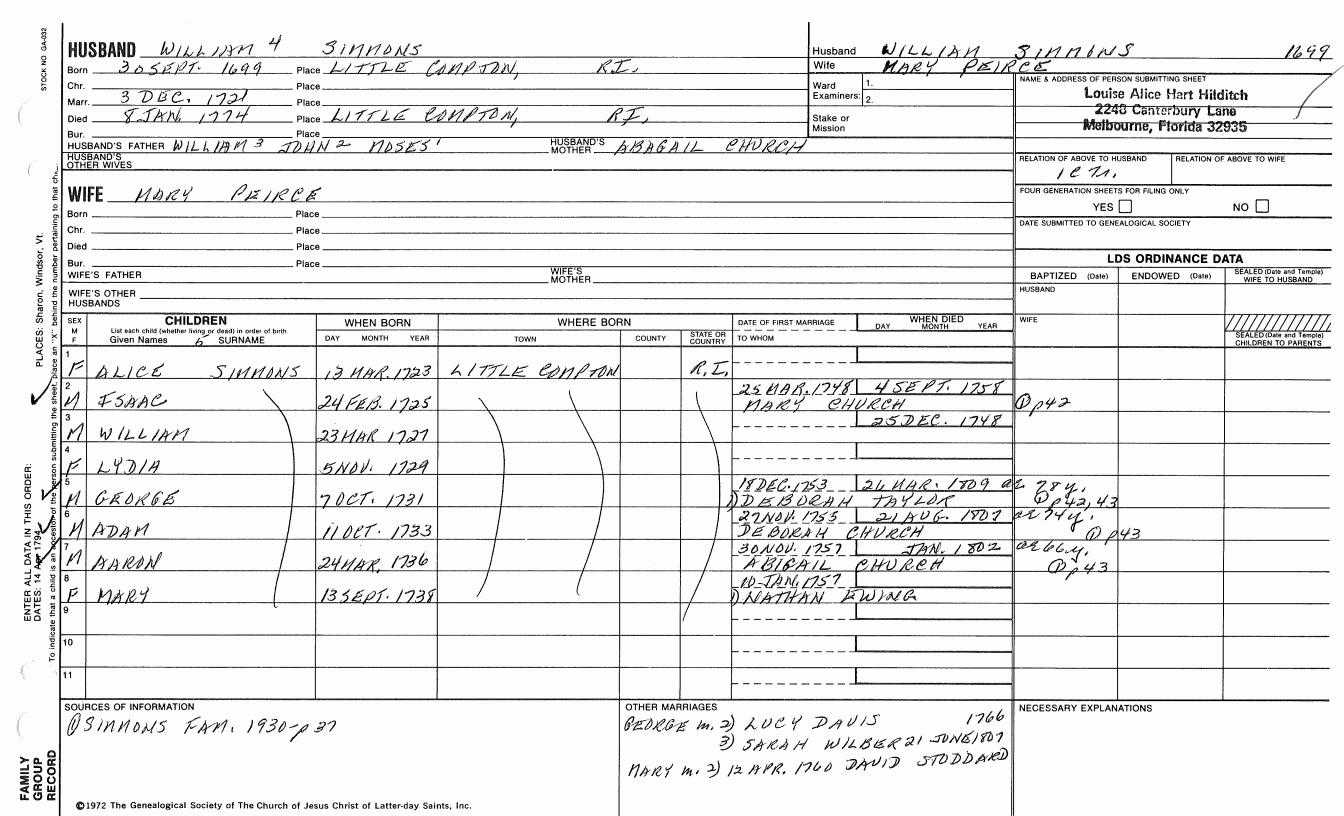 STOCK NO GA-032
HUSBAND WILLIAM 4 SIMMONS
Born 30 SEPT. 1699 Place LITTLE COMPTON, R.I.
Chr. Place
Marr. 3 DEC. 1721 Place
Died 8 JAN, 1774 Place LITTLE COMPTON, R.I,
Bur. Place
HUSBAND'S FATHER WILLIAM 3 JOHN 2 MOSES 1 HUSBAND'S MOTHER ABAGAIL CHURCH
HUSBAND'S OTHER WIVES
Husband WILLIAM SIMMONS 1699
Wife MARY PEIRCE
Ward Examiners: 1. 2.
Stake or Mission
NAME & ADDRESS OF PERSON SUBMITTING SHEET
Louise Alice Hart Hilditch
2248 Canterbury Lane
Melbourne, Florida 32935
RELATION OF ABOVE TO HUSBAND RELATION OF ABOVE TO WIFE
FOUR GENERATION SHEETS FOR FILING ONLY
YES NO
DATE SUBMITTED TO GENEALOGICAL SOCIETY
WIFE MARY PEIRCE
Born Place
Chr. Place
Died Place
Bur. Place
WIFE'S FATHER WIFE'S MOTHER
WIFE'S OTHER HUSBANDS
LDS ORDINANCE DATA
BAPTIZED (Date) ENDOWED (Date) SEALED (Date and Temple) WIFE TO HUSBAND
HUSBAND
WIFE
SEALED (Date and Temple) CHILDREN TO PARENTS
SEX M F CHILDREN WHEN BORN WHERE BORN DATE OF FIRST MARRIAGE WHEN DIED
List each child (whether living or dead) in order of birth
Given Names SURNAME DAY MONTH YEAR TOWN COUNTY STATE OR COUNTRY TO WHOM DAY MONTH YEAR
1 F ALICE SIMMONS 13 MAR. 1723 LITTLE COMPTON R.I.
2 25 MAR. 1748 4 SEPT. 1758
M ISAAC 24 FEB. 1725 MARY CHURCH ① p42
3 25 DEC. 1748
M WILLIAM 23 MAR 1727
4 F LYDIA 5 NOV. 1729
5 18 DEC. 1753 26 MAR. 1809 ae 78 y.
M GEORGE 7 OCT. 1731 1) DEBORAH TAYLOR ① p42, 43
6 27 NOV. 1755 21 AUG. 1807 ae 74 y.
M ADAM 11 OCT. 1733 DEBORAH CHURCH ① p43
7 30 NOV. 1757 JAN. 1802 ae 66 y,
M AARON 24 MAR. 1736 ABIGAIL CHURCH ① p43
8 10 JAN. 1757
F MARY 13 SEPT. 1738 1) NATHAN EWING
9
10
11
SOURCES OF INFORMATION
① SIMMONS FAM. 1930-p 37
OTHER MARRIAGES
GEORGE m. 2) LUCY DAVIS 1766
3) SARAH WILBER 21 JUNE 1807
MARY m. 2) 12 APR. 1760 DAVID STODDARD
NECESSARY EXPLANATIONS
©1972 The Genealogical Society of The Church of Jesus Christ of Latter-day Saints, Inc.
ENTER ALL DATA IN THIS ORDER:
DATES: 14 Apr 1794
PLACES: Sharon, Windsor, Vt.
To indicate that a child is an ancestor of the person submitting the sheet, place an "X" behind the number pertaining to that
FAMILY
GROUP
RECORD